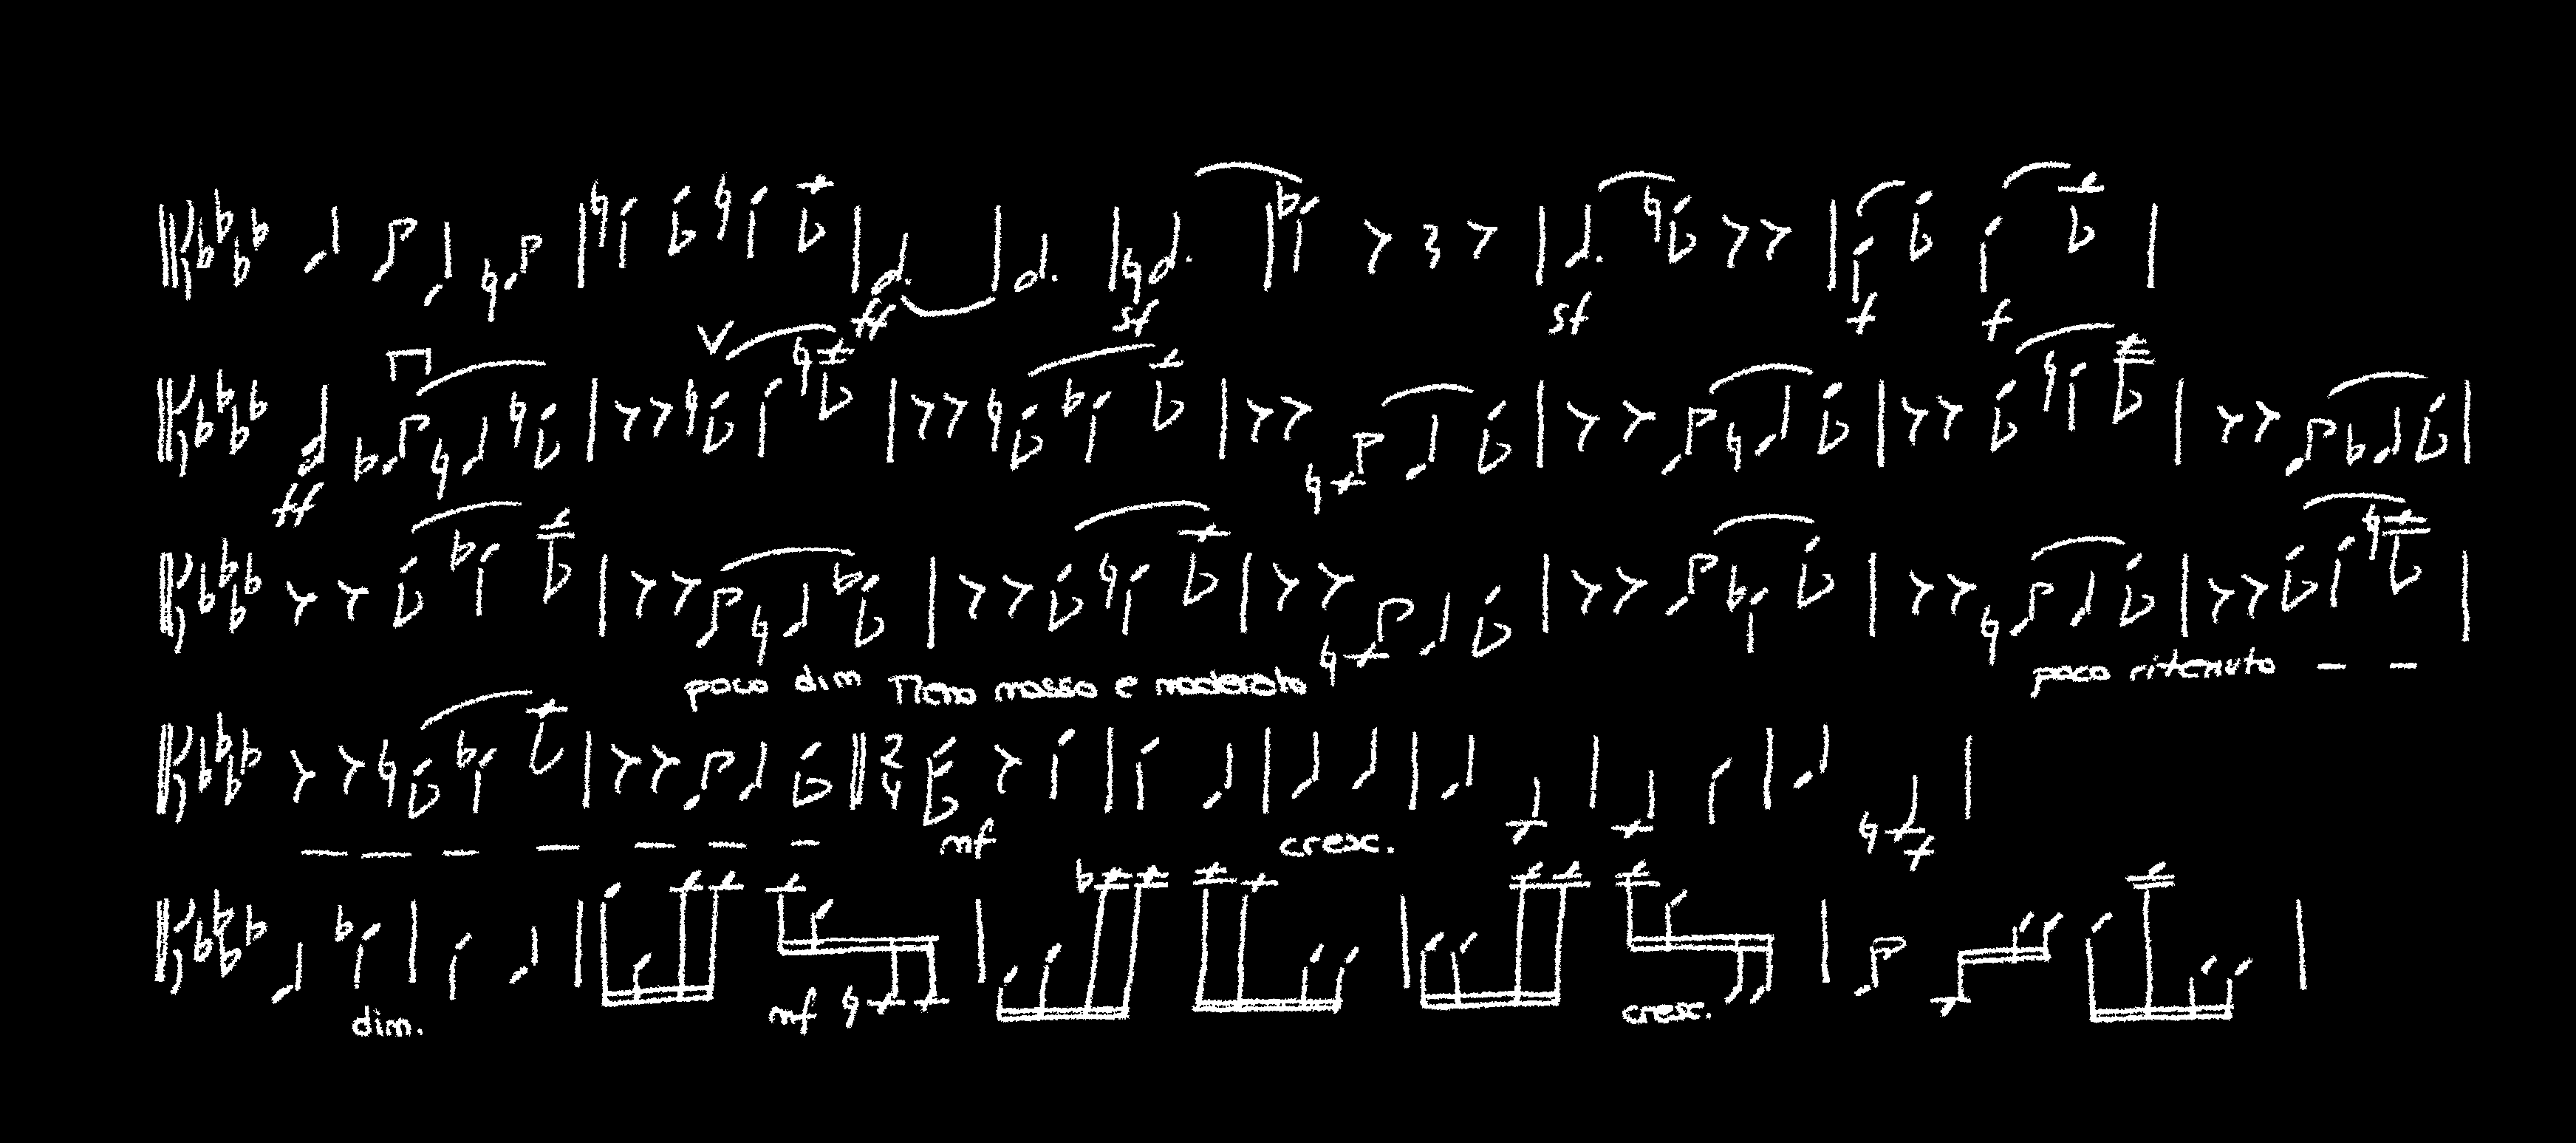 ff sf sf f f
ff
poco dim Meno mosso e moderato poco ritenuto - -
2
4
mf cresc. f
dim. mf cresc.